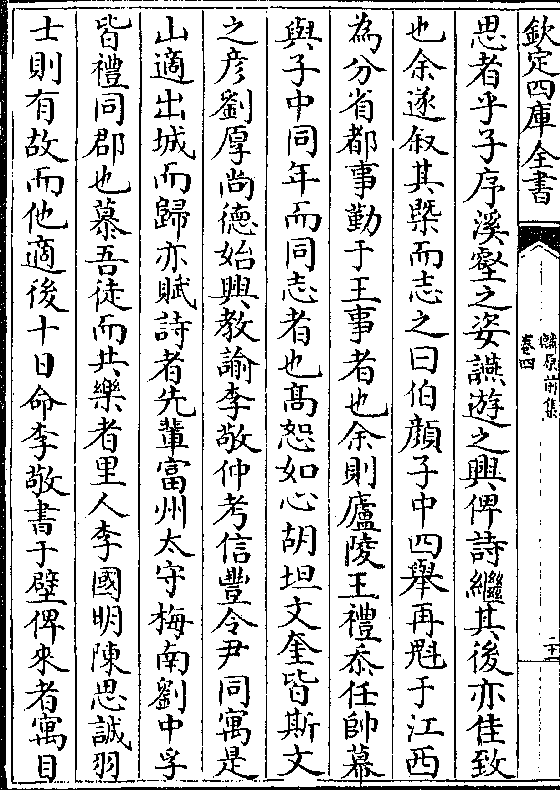 欽定四庫全書
麟原前集
卷四
思者乎子序溪壑之姿讌遊之興俾詩繼其後亦佳致
也余遂叙其槩而志之曰伯顔子中四舉再魁于江西
為分省都事勤于王事者也余則廬陵王禮忝任帥幕
與子中同年而同志者也髙恕如心胡坦文奎皆斯文
之彦劉厚尚德始興教諭李敬仲考信豐令尹同寓是
山適出城而歸亦賦詩者先輩富州太守梅南劉中孚
皆禮同郡也慕吾徒而共樂者里人李國明陳思誠羽
士則有故而他適後十日命李敬書于壁俾來者寓目